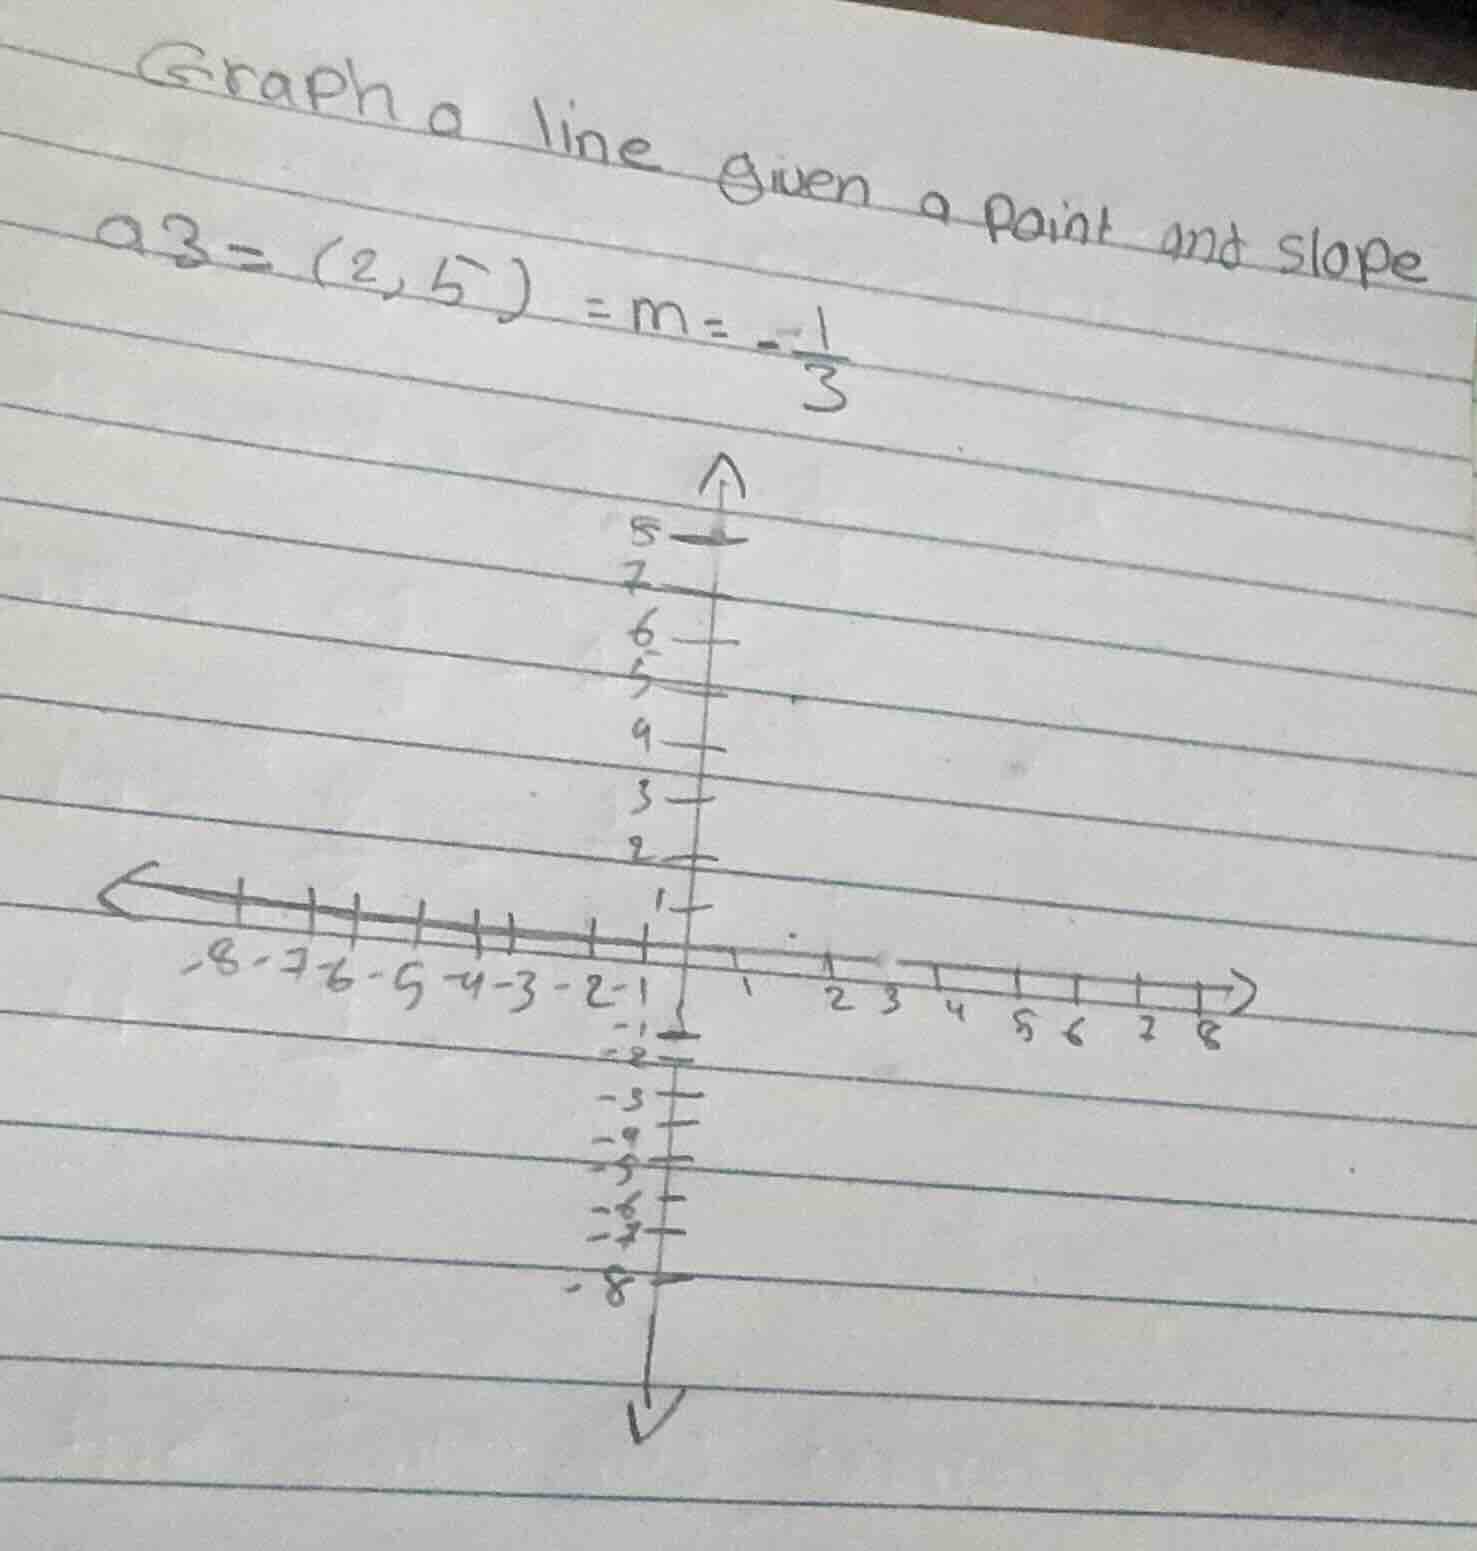 Graph a line given a point and slope
a3 = (2, 5) = m = -1/3
8
7
6
5
4
3
2
1
-8 -7 -6 -5 -4 -3 -2 -1 1 2 3 4 5 6 7 8
-1
-2
-3
-4
-5
-6
-7
-8